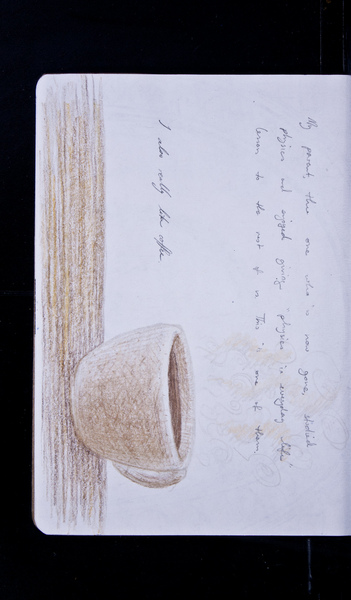 My parent, the one who is now gone, studied
physics and enjoyed giving "physics in everyday life"
lesson to the rest of us. This is one of them.
I also really like coffee.